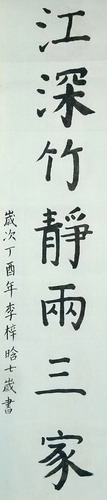 江深竹靜兩三家
歲次丁酉年李梓晗七歲書